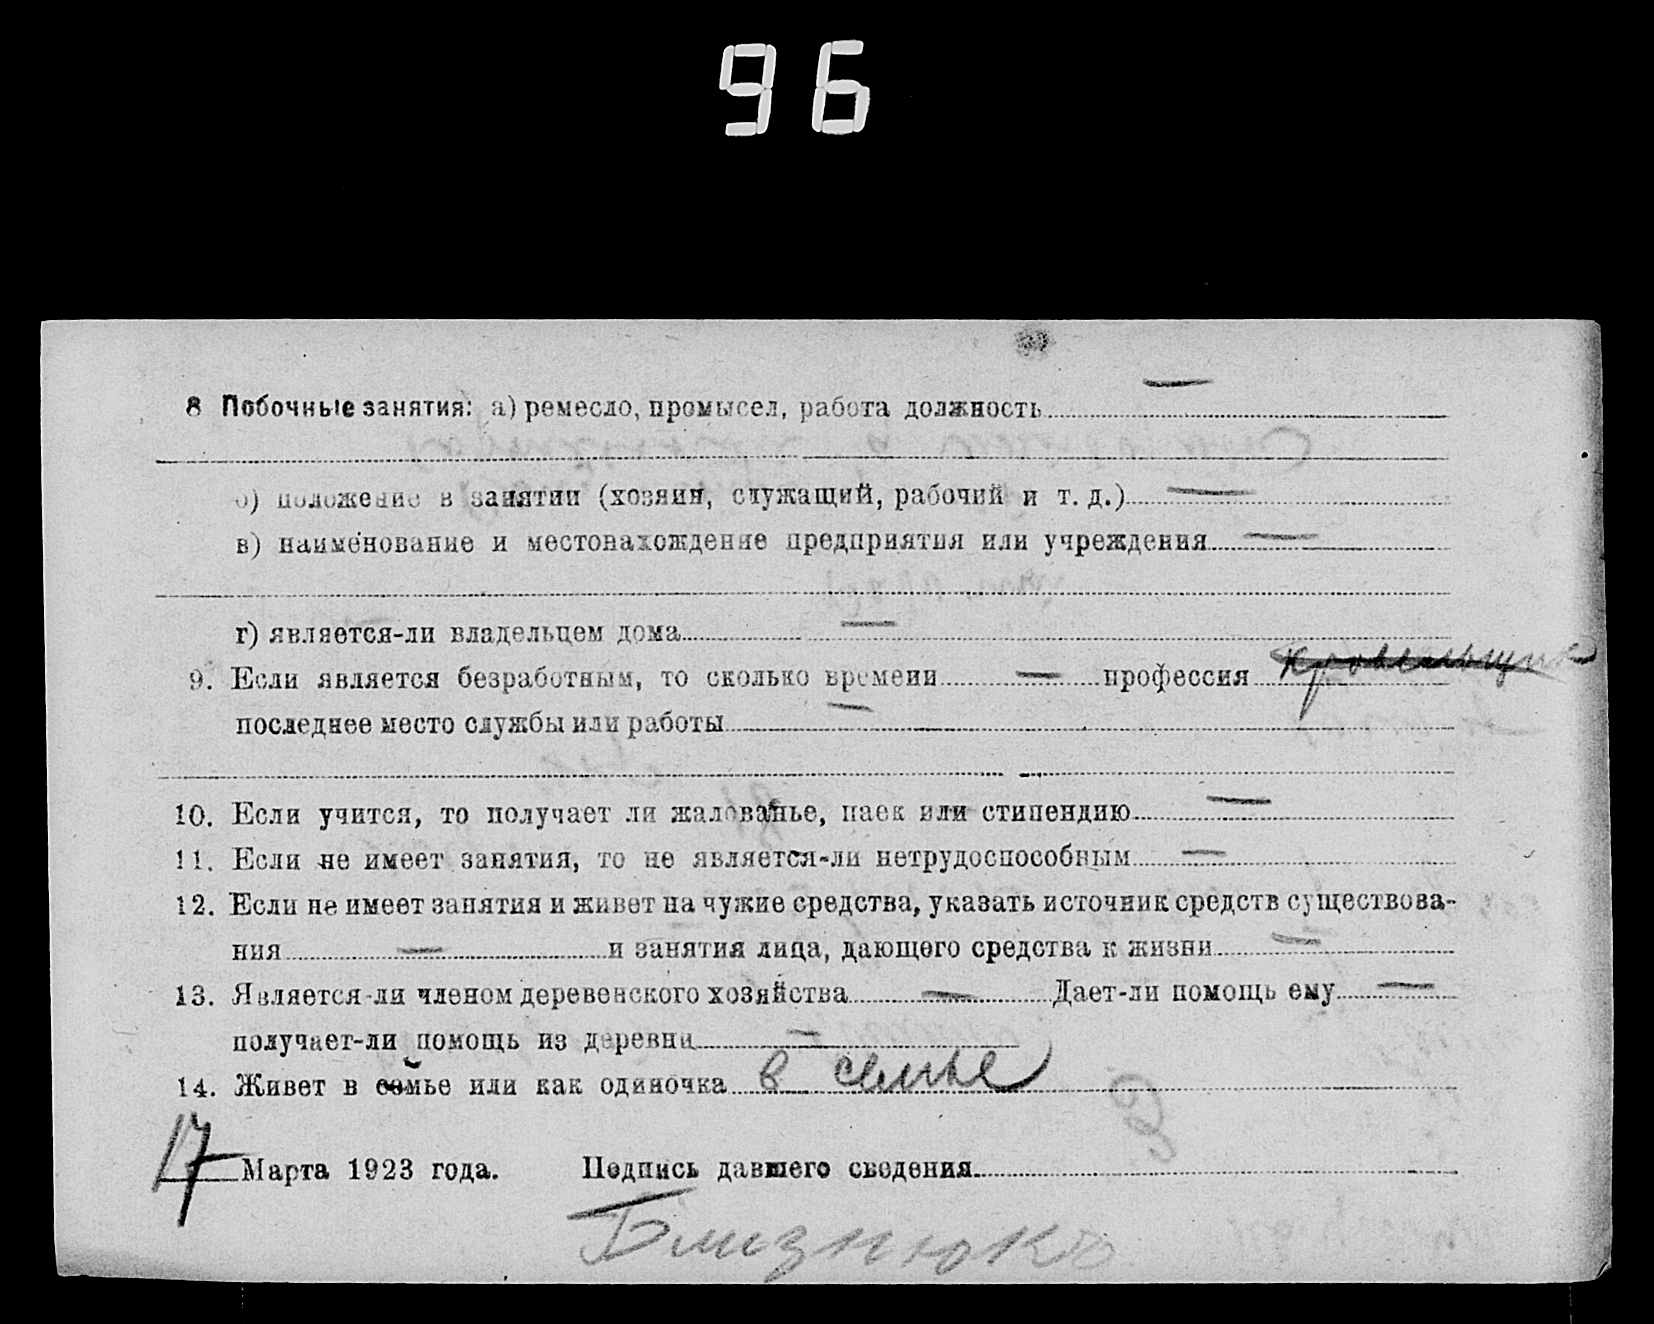 96
8 Побочные занятия: а) ремесло, промысел, работа должность —
б) положение в занятии (хозяин, служащий, рабочий и т. д.) —
в) наименование и местонахождение предприятия или учреждения —
г) является-ли владельцем дома —
9. Если является безработным, то сколько времени — профессия кровельщик
последнее место службы или работы —
10. Если учится, то получает ли жалованье, паек или стипендию —
11. Если не имеет занятия, то не является-ли нетрудоспособным —
12. Если не имеет занятия и живет на чужие средства, указать источник средств существова-
ния — и занятия лица, дающего средства к жизни —
13. Является-ли членом деревенского хозяйства — Дает-ли помощь ему —
получает-ли помощь из деревни —
14. Живет в семье или как одиночка в семье
17 Марта 1923 года. Подпись давшего сведения
Близнюк